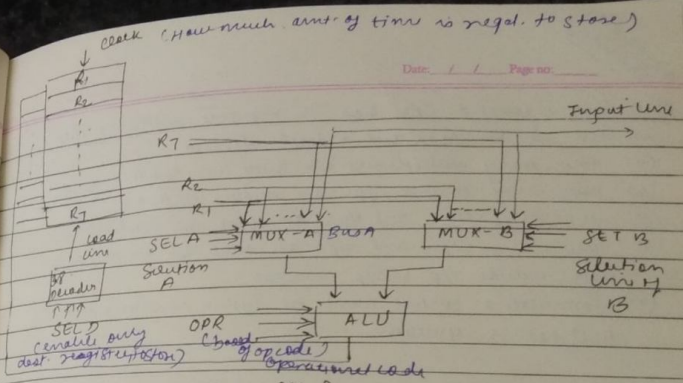 clock (How much amt. of time is reqd. to store)
Date: / / Page no:
R1
R2
Input Line
R7
R2
R1
R7
Load
line
SEL A
MUX-A
Bus A
MUX-B
SET B
A
B
Decoder
SEL D
(enable only
dest. register to store)
OPR
ALU
(based
of opcode)
Operational code